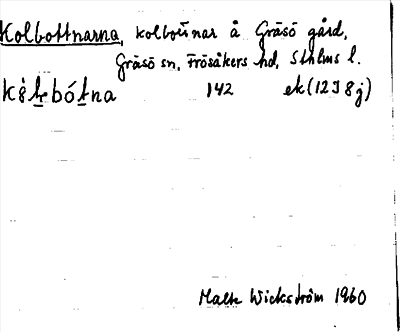 Kolbottnarna, kolbottnar å Gräsö gård,
Gräsö sn, Frösåkers hd, Sthlms l.
142 ek (12I8j)
Malte Wickström 1960